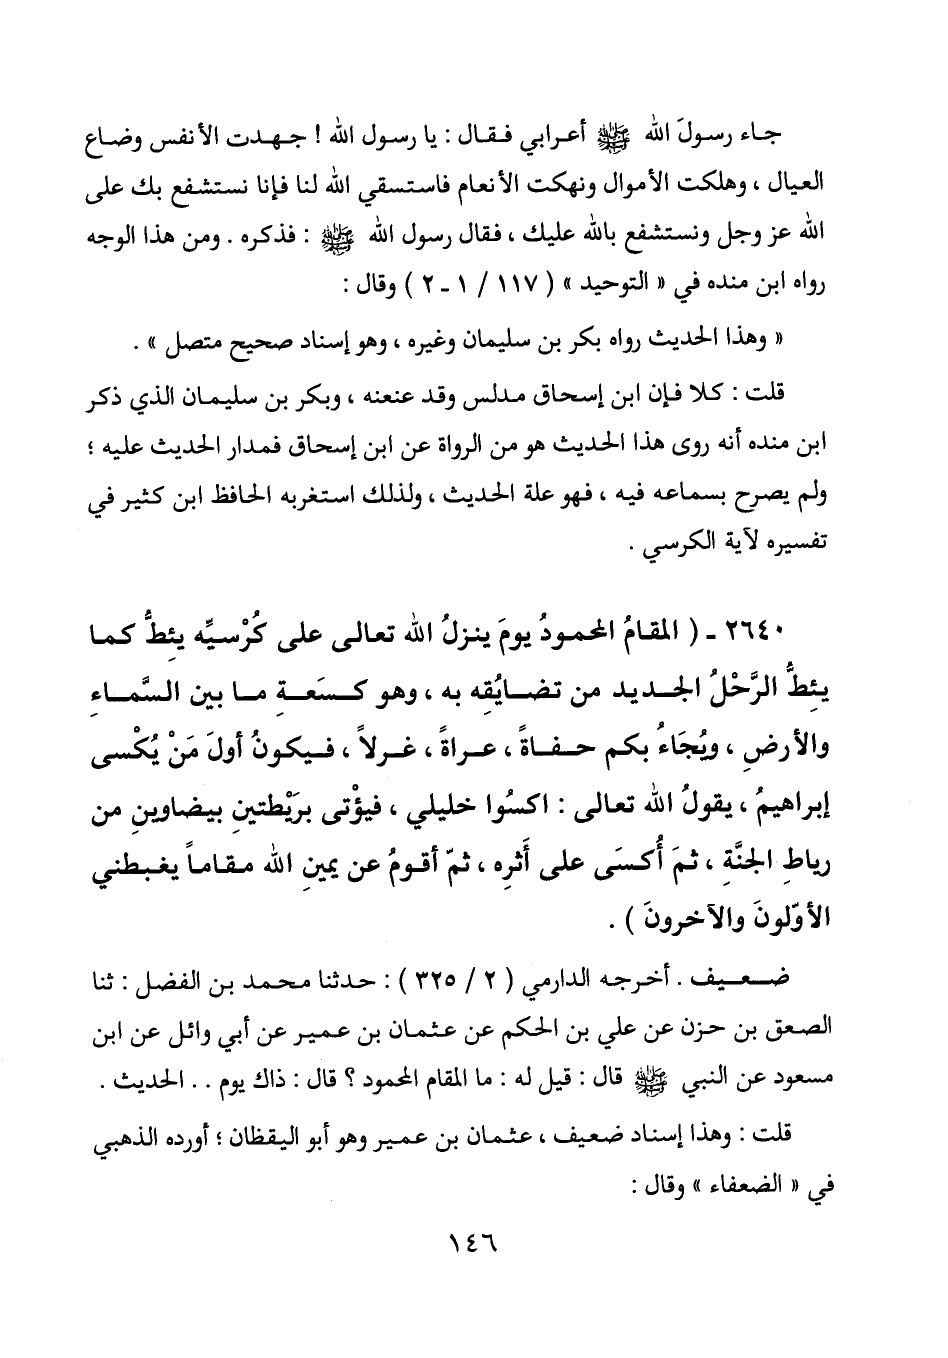 جاء رسولَ الله ﷺ أعرابي فقال : يا رسول الله ! جهدت الأنفس وضاع
العيال ، وهلكت الأموال ونهكت الأنعام فاستسقي الله لنا فإنا نستشفع بك على
الله عز وجل ونستشفع بالله عليك ، فقال رسول الله ﷺ : فذكره . ومن هذا الوجه
رواه ابن منده في « التوحيد » ( ١١٧ / ١ ـ ٢ ) وقال :
« وهذا الحديث رواه بكر بن سليمان وغيره ، وهو إسناد صحيح متصل » .
قلت : كلا فإن ابن إسحاق مدلس وقد عنعنه ، وبكر بن سليمان الذي ذكر
ابن منده أنه روى هذا الحديث هو من الرواة عن ابن إسحاق فمدار الحديث عليه ؛
ولم يصرح بسماعه فيه ، فهو علة الحديث ، ولذلك استغربه الحافظ ابن كثير في
تفسيره لآية الكرسي .
٢٦٤٠ ـ ( المقامُ المحمودُ يومَ ينزلُ الله تعالى على كُرْسيِّه يئِطُّ كما
يئِطُّ الرَّحْلُ الجديد من تضايُقه به ، وهو كسَعَةِ ما بين السَّماءِ
والأرضِ ، ويُجَاءُ بكم حفاةً ، عراةً ، غرلاً ، فيكونُ أولَ مَنْ يُكْسى
إبراهيمُ ، يقولُ الله تعالى : اكسُوا خليلي ، فيؤْتى برَيْطتينِ بيضاوينِ من
رياطِ الجنَّةِ ، ثمَ أُكسَى على أَثرِه ، ثمّ أقومُ عن يمينِ الله مقاماً يغبطني
الأوّلونَ والآخرونَ ) .
ضعيف . أخرجه الدارمي ( ٢ / ٣٢٥ ) : حدثنا محمد بن الفضل : ثنا
الصعق بن حزن عن علي بن الحكم عن عثمان بن عمير عن أبي وائل عن ابن
مسعود عن النبي ﷺ قال : قيل له : ما المقام المحمود ؟ قال : ذاك يوم . . الحديث .
قلت : وهذا إسناد ضعيف ، عثمان بن عمير وهو أبو اليقظان ؛ أورده الذهبي
في « الضعفاء » وقال :
١٤٦